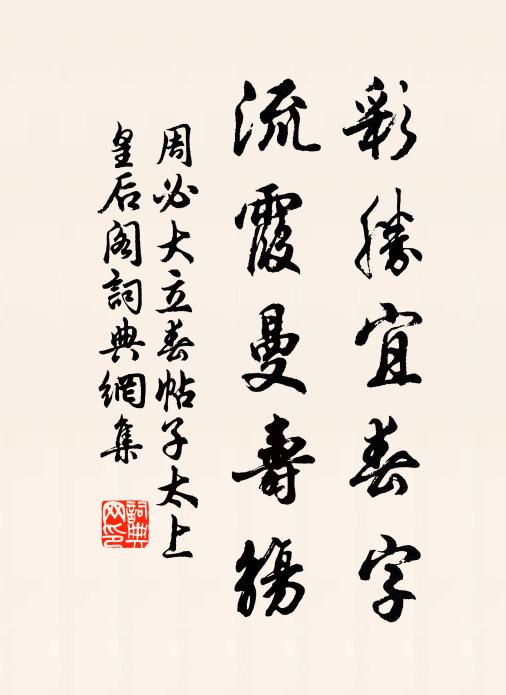 彩勝宜春字
流霞曼壽觴
周必大立春帖子太上
皇后阁詞典網集
詞典
网印